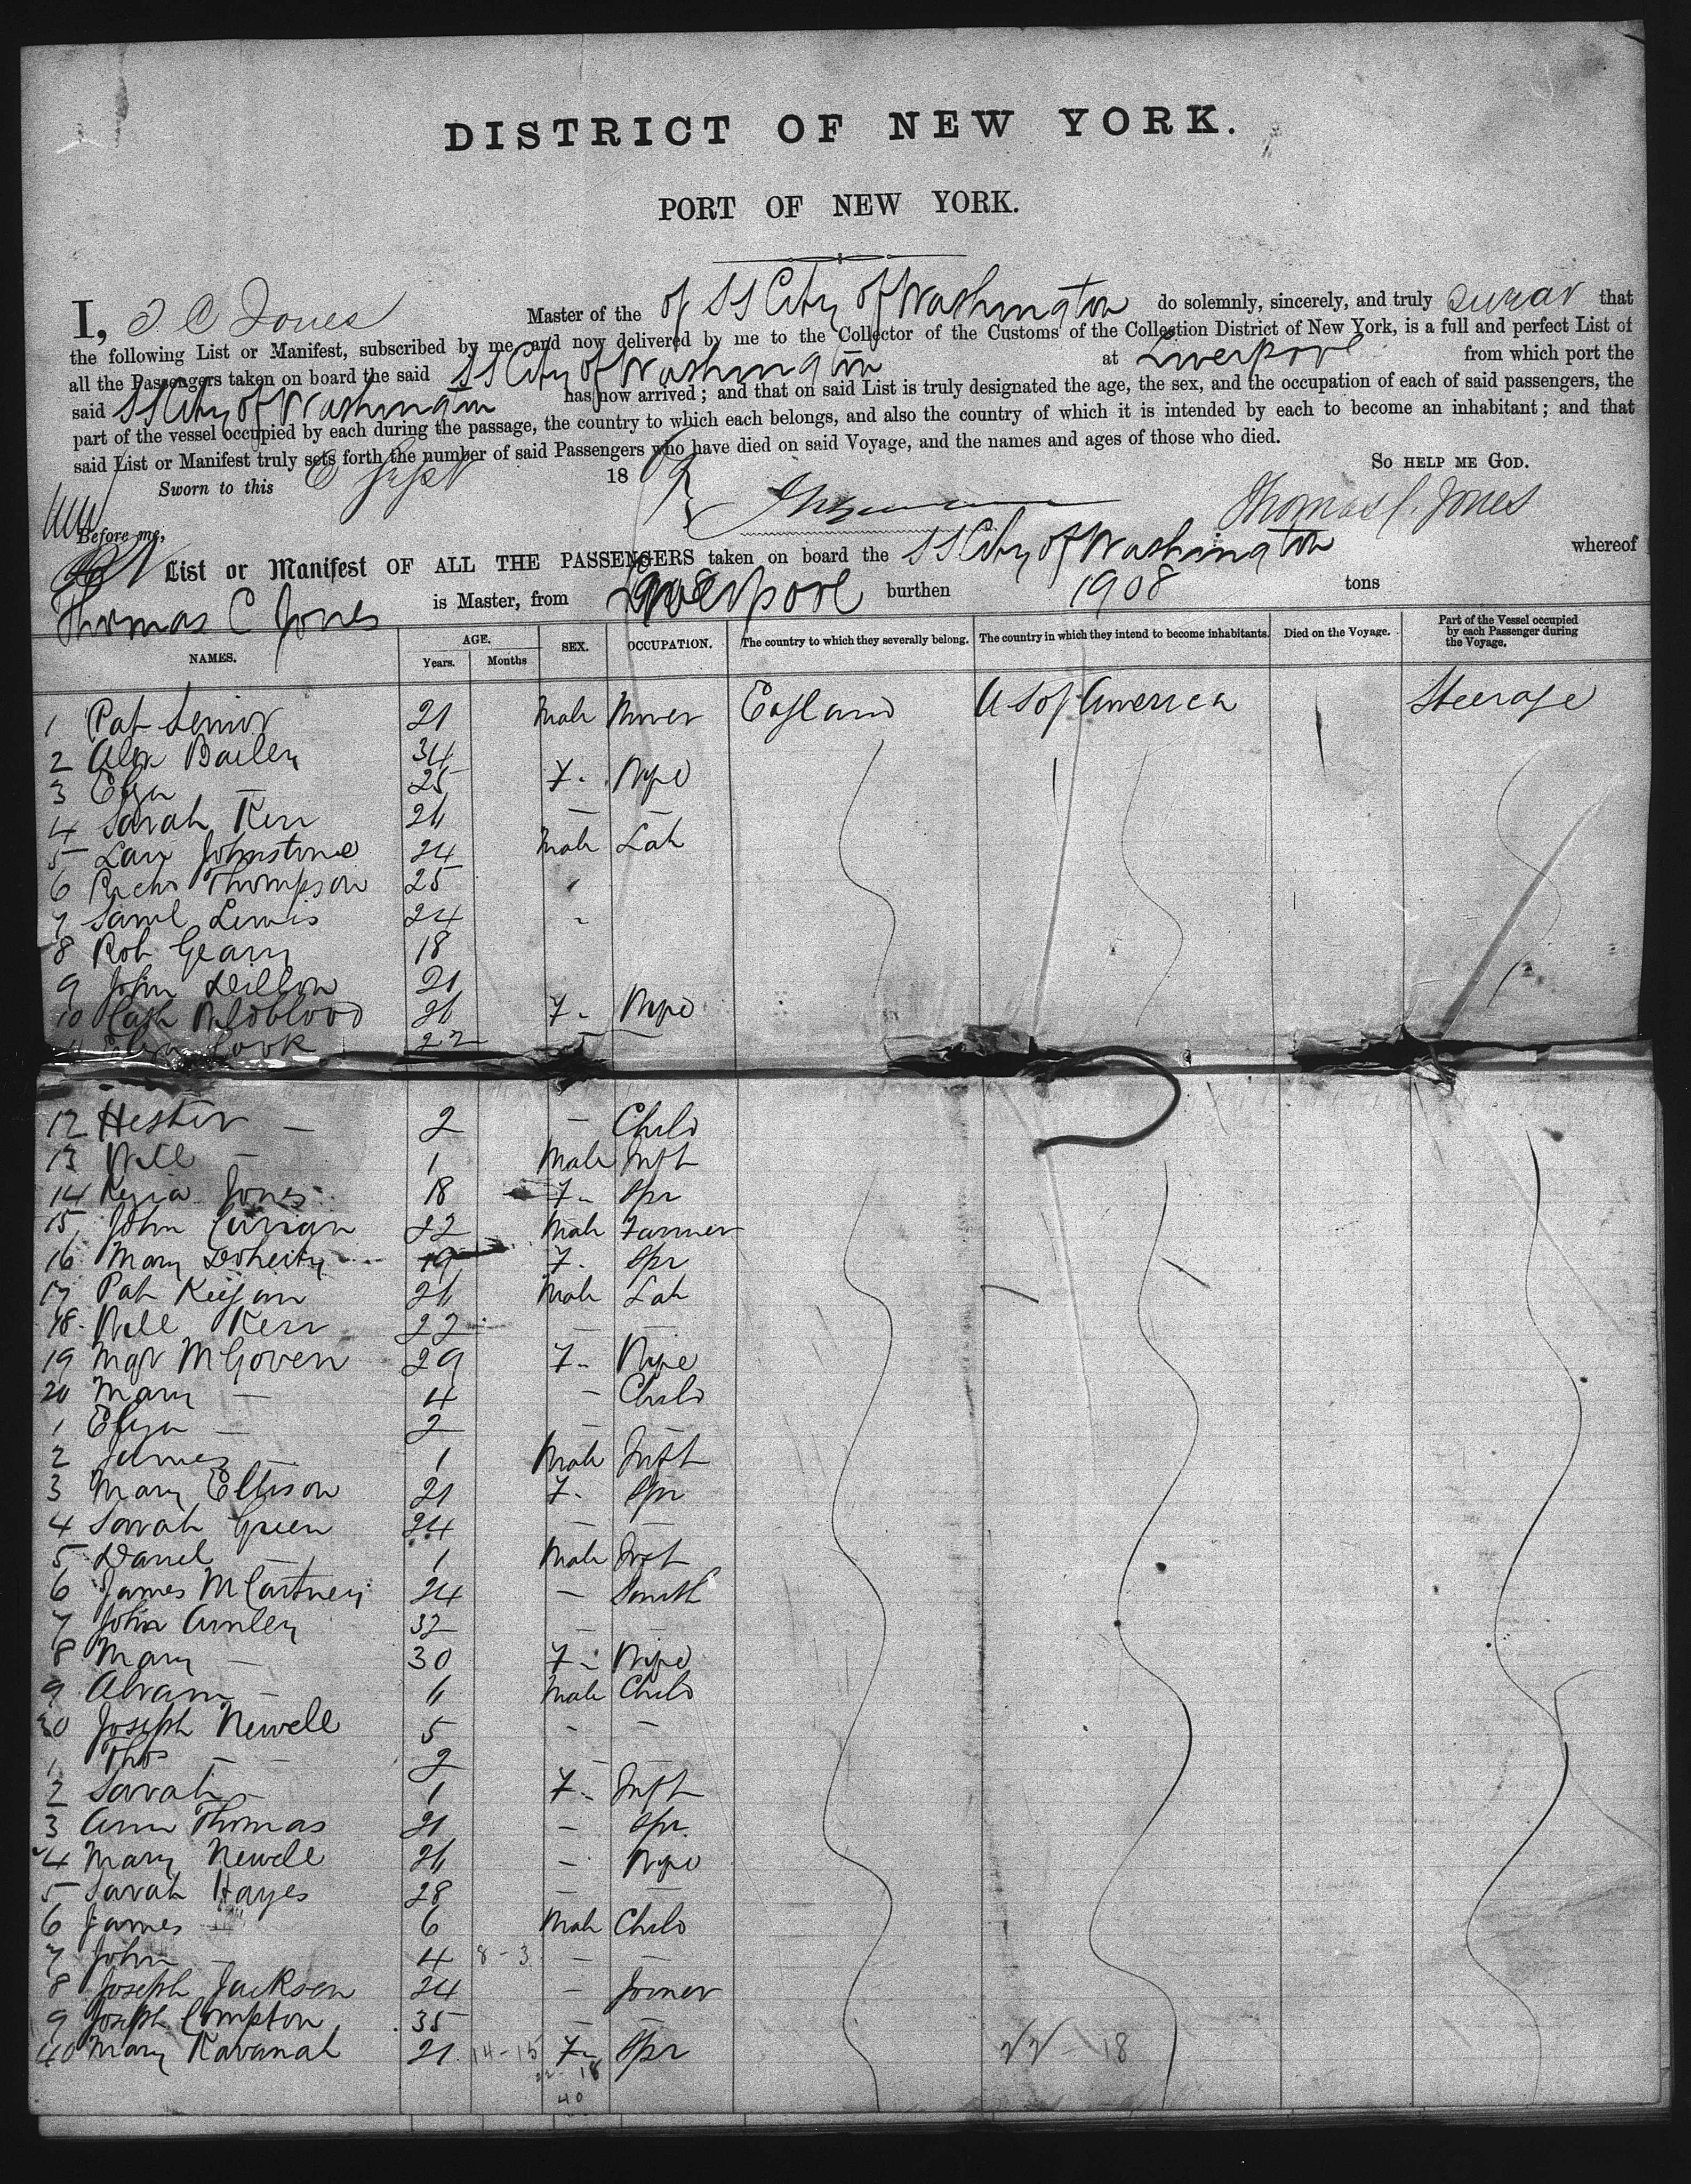 DISTRICT OF NEW YORK.
PORT OF NEW YORK.
I, T C Jones Master of the of SS City of Washington do solemnly, sincerely, and truly swear that
the following List or Manifest, subscribed by me and now delivered by me to the Collector of the Customs of the Collection District of New York, is a full and perfect List of
all the Passengers taken on board the said SS City of Washington at Liverpool from which port the
said SS City of Washington has now arrived; and that on said List is truly designated the age, the sex, and the occupation of each of said passengers, the
part of the vessel occupied by each during the passage, the country to which each belongs, and also the country of which it is intended by each to become an inhabitant; and that
said List or Manifest truly sets forth the number of said Passengers who have died on said Voyage, and the names and ages of those who died.
So HELP ME GOD.
Sworn to this 6 Sept 1869
Thomas C. Jones
Before me,
List or Manifest OF ALL THE PASSENGERS taken on board the SS City of Washington whereof
Thomas C Jones is Master, from Liverpool burthen 1908 tons
NAMES. AGE. Years. Months SEX. OCCUPATION. The country to which they severally belong. The country in which they intend to become inhabitants. Died on the Voyage. Part of the Vessel occupied by each Passenger during the Voyage.
1 Pat Senior 21 Male Miner England U S of America Steerage
2 Alex Bailey 34
3 Eliza — 25 F. Wife
4 Sarah Kerr 26 — —
5 Lau Johnstone 24 Male Lab
6 Richd Thompson 25 "
7 Saml Lewis 24 "
8 Rob Geary 18
9 John Dillon 21
10 Cath Wildblood 26 F. Wife
11 Eliza Cook 22 — —
12 Hester — 2 — Child
13 Will — 1 Male Inft
14 Kezia Jones 18 F. Spr
15 John Curran 22 Male Farmer
16 Mary Doherty 19 F. Spr
17 Pat Keegan 26 Male Lab
18 Will Kerr 22 — —
19 Mgt McGovern 29 F. Wife
20 Mary — 4 — Child
1 Eliza — 2 — —
2 James — 1 Male Inft
3 Mary Ellison 21 F. Spr
4 Sarah Green 24 — —
5 Daniel — 1 Male Inft
6 James McCartney 24 — Smith
7 John Annley 32 — —
8 Mary — 30 F. Wife
9 Abram — 6 Male Child
30 Joseph Newell 5 — —
1 Thos — 2 — —
2 Sarah — 1 F. Inft
3 Ann Thomas 21 — Spr
4 Mary Newell 26 — Wife
5 Sarah Hayes 28 — —
6 James — 6 Male Child
7 John — 4 8-3 — —
8 Joseph Jackson 24 — Joiner
9 Joseph Compton 35 — —
40 Mary Kavanah 21 14-15 F. Spr 22 - 18
22 18
40